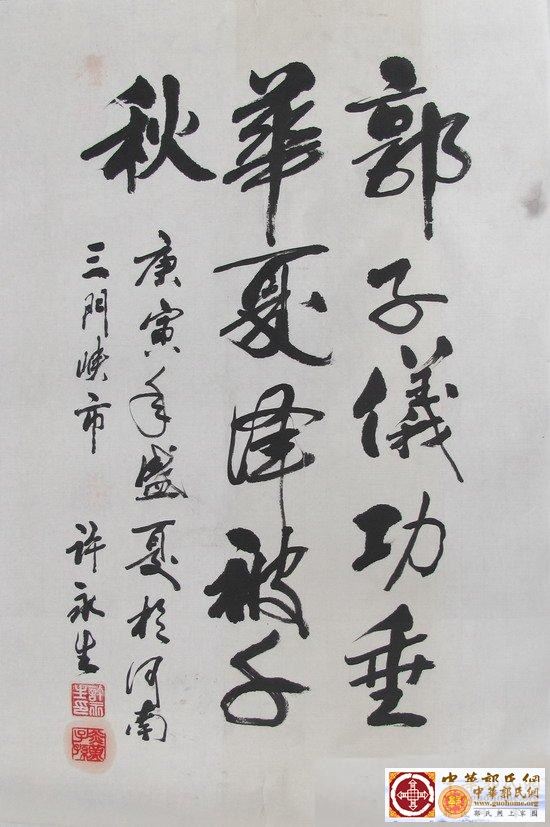 郭子儀功垂
華夏澤被千
秋
庚寅年盛夏於河南
三門峽市 许永生
中華郭氏網
中華郭氏網
www.guohome.org
郭氏烈上家園